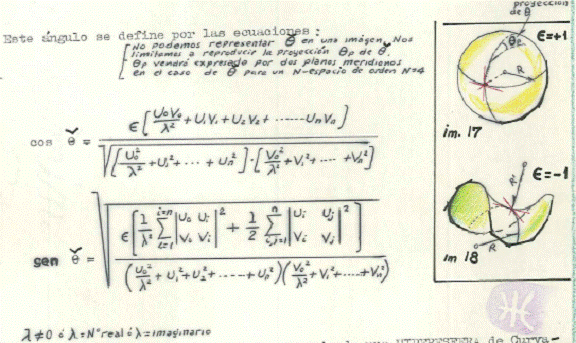 Este ángulo se define por las ecuaciones:
No podemos representar θ̌ en una imágen. Nos
limitamos a reproducir la proyección θp de θ̌.
θp vendrá expresado por dos planos meridianos
en el caso de θ̌ para un N-espacio de orden N=4
cos θ̌ = ϵ[U₀V₀/λ² + U₁V₁ + U₂V₂ + ------ UₙVₙ] / √([U₀²/λ² + U₁² + ··· + Uₙ²]·[V₀²/λ² + V₁² + ···· + Vₙ²])
sen θ̌ = √(ϵ[1/λ² ∑ᵢ₌₁ⁱ⁼ⁿ |U₀ Uᵢ; V₀ Vᵢ|² + 1/2 ∑ᵢ,ⱼ₌₁ⁿ |Uᵢ Uⱼ; Vᵢ Vⱼ|²] / (U₀²/λ² + U₁² + U₂² + ----- + Uₙ²)(V₀²/λ² + V₁² + .... + Vₙ²))
λ≠0 ó λ=Nº real ó λ=imaginario
HIPERESFERA de Curva-
proyección
de θ̌
ϵ=+1
θp
R
im. 17
ϵ=-1
R
im 18